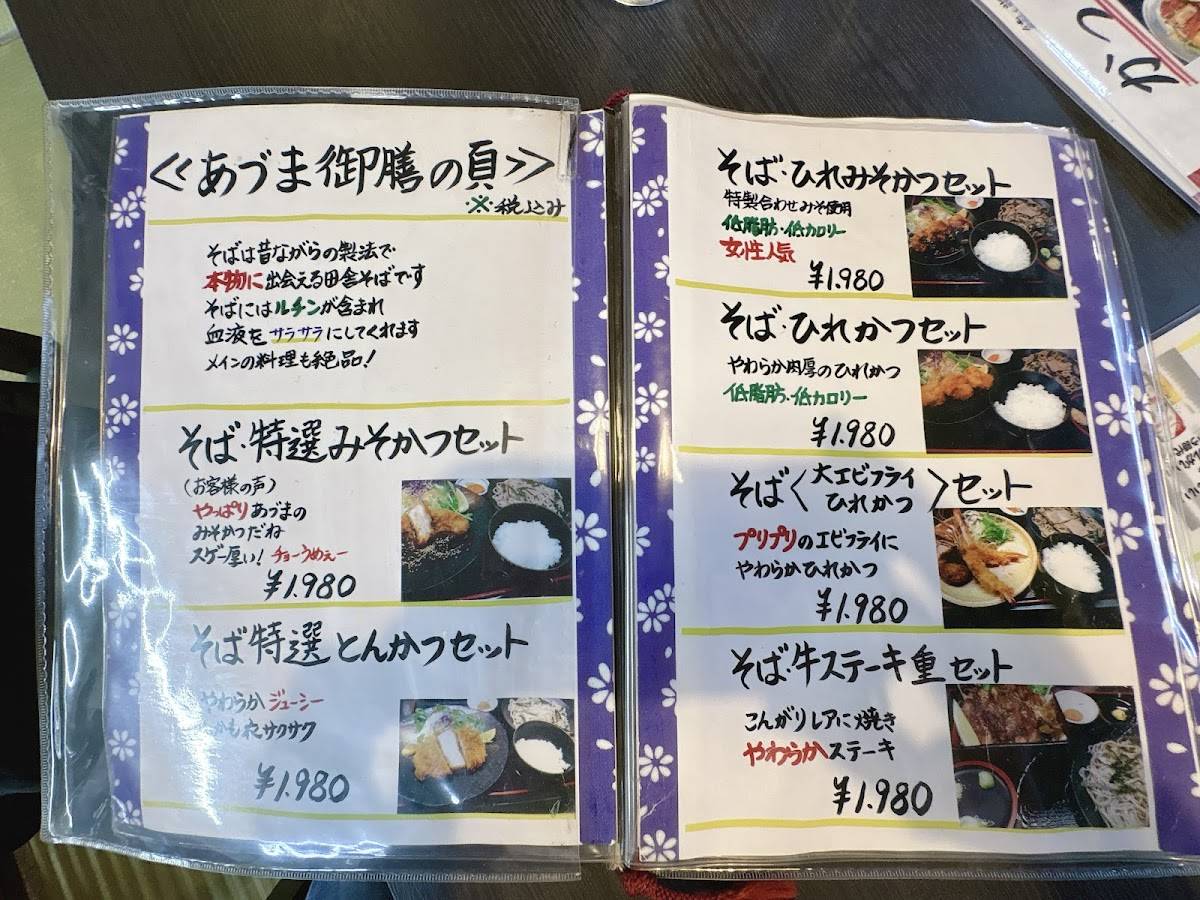 ≪あづま御膳の頁≫
※税込み
そばは昔ながらの製法で
本物に出会える田舎そばです
そばにはルチンが含まれ
血液をサラサラにしてくれます
メインの料理も絶品!
そば・特選みそかつセット
(お客様の声)
やっぱりあづまの
みそかつだね
スゲー厚い! チョーうめぇー
¥1.980
そば特選とんかつセット
やわらかジューシー
かも衣サクサク
¥1.980
そば・ひれみそかつセット
特製合わせみそ使用
低脂肪・低カロリー
女性人気
¥1.980
そば・ひれかつセット
やわらか肉厚のひれかつ
低脂肪・低カロリー
¥1.980
そば〈大エビフライ
ひれかつ〉セット
プリプリのエビフライに
やわらかひれかつ
¥1.980
そば・牛ステーキ重セット
こんがりレアに焼き
やわらかステーキ
¥1.980
かつ